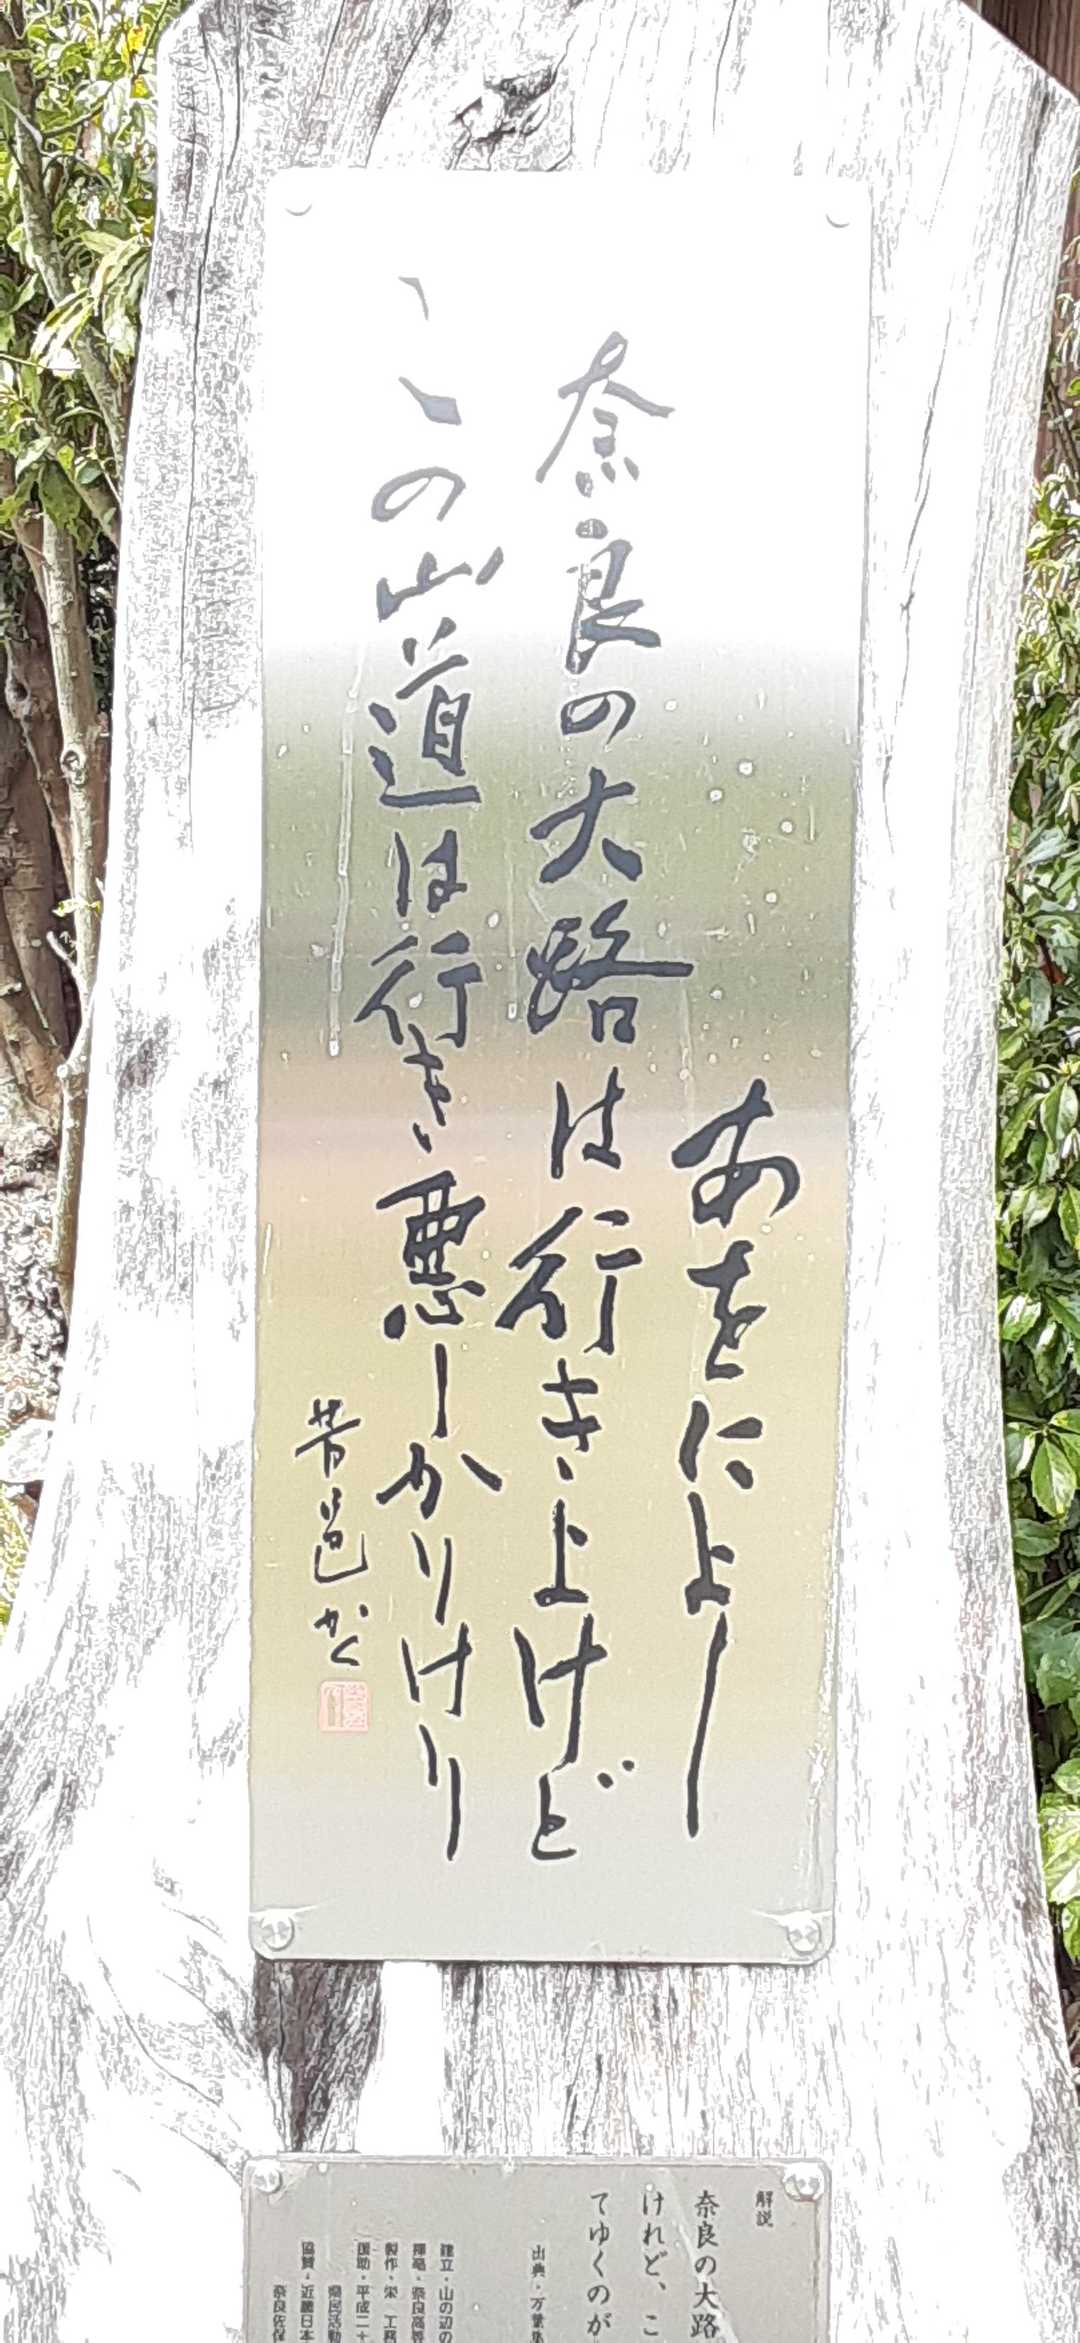 あをによし
奈良の大路は行きよけど
この山道は行き悪しかりけり
かく
解説
奈良の大路
けれど、こ
てゆくのが
出典・万葉集
建立・山の辺の
揮毫・奈良高等
製作・栄 工務
援助・平成二十
県民活動
協賛・近畿日本
奈良佐保